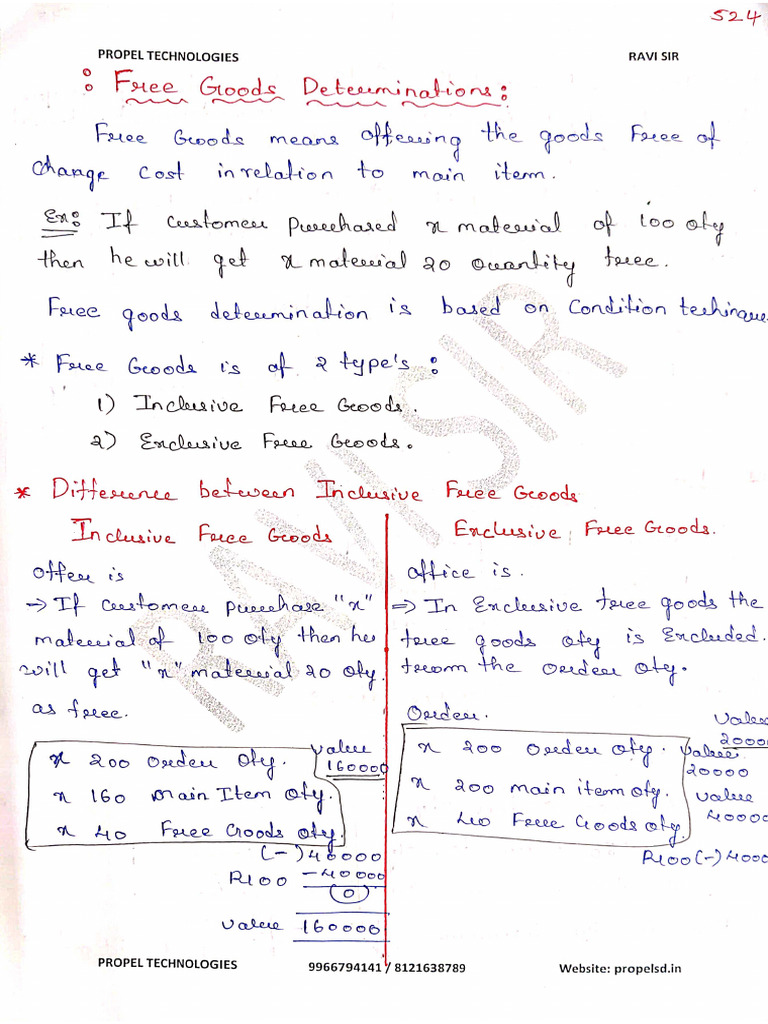 524
PROPEL TECHNOLOGIES RAVI SIR
: Free Goods Determinations:
Free Goods means offering the goods Free of
change cost in relation to main item.
Ex: If customer purchased x material of 100 qty
then he will get x material 20 quantity free.
Free goods determination is based on Condition techinque
* Free Goods is of 2 type's :
1) Inclusive Free Goods.
2) Exclusive Free Goods.
* Difference between Inclusive Free Goods
Inclusive Free Goods
offer is
→ If customer purchase "x"
material of 100 qty then he
will get "x" material 20 qty
as free.
x 200 Order Qty. value
160000
x 160 Main Item Qty.
x 40 Free Goods qty.
(-) 40000
R100 -40000
0
value 160000
Exclusive Free Goods.
office is.
⇒ In Exclusive free goods the
free goods qty is Excluded.
from the order qty.
Order. value
2000
x 200 Order qty. value
20000
x 200 main item qty. value
40000
x 40 Free Goods qty.
R100 (-) 4000
RAVI SIR
PROPEL TECHNOLOGIES 9966794141 / 8121638789 Website: propelsd.in